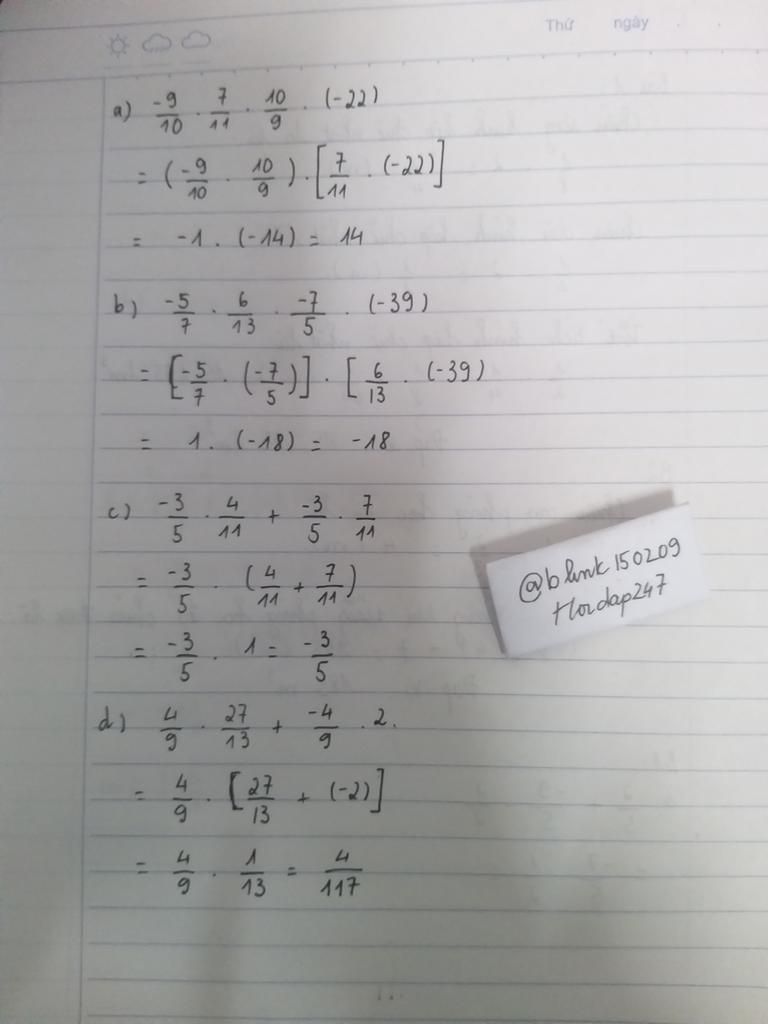 Thứ ngày
a) -9/10 . 7/11 . 10/9 . (-22)
= (-9/10 . 10/9) . [7/11 . (-22)]
= -1 . (-14) = 14
b) -5/7 . 6/13 . -7/5 . (-39)
= [-5/7 . (-7/5)] . [6/13 . (-39)
= 1 . (-18) = -18
c) -3/5 . 4/11 + -3/5 . 7/11
= -3/5 . (4/11 + 7/11)
= -3/5 . 1 = -3/5
@blink150209
Hoidap247
d) 4/9 . 27/13 + -4/9 . 2.
= 4/9 . [27/13 + (-2)]
= 4/9 . 1/13 = 4/117